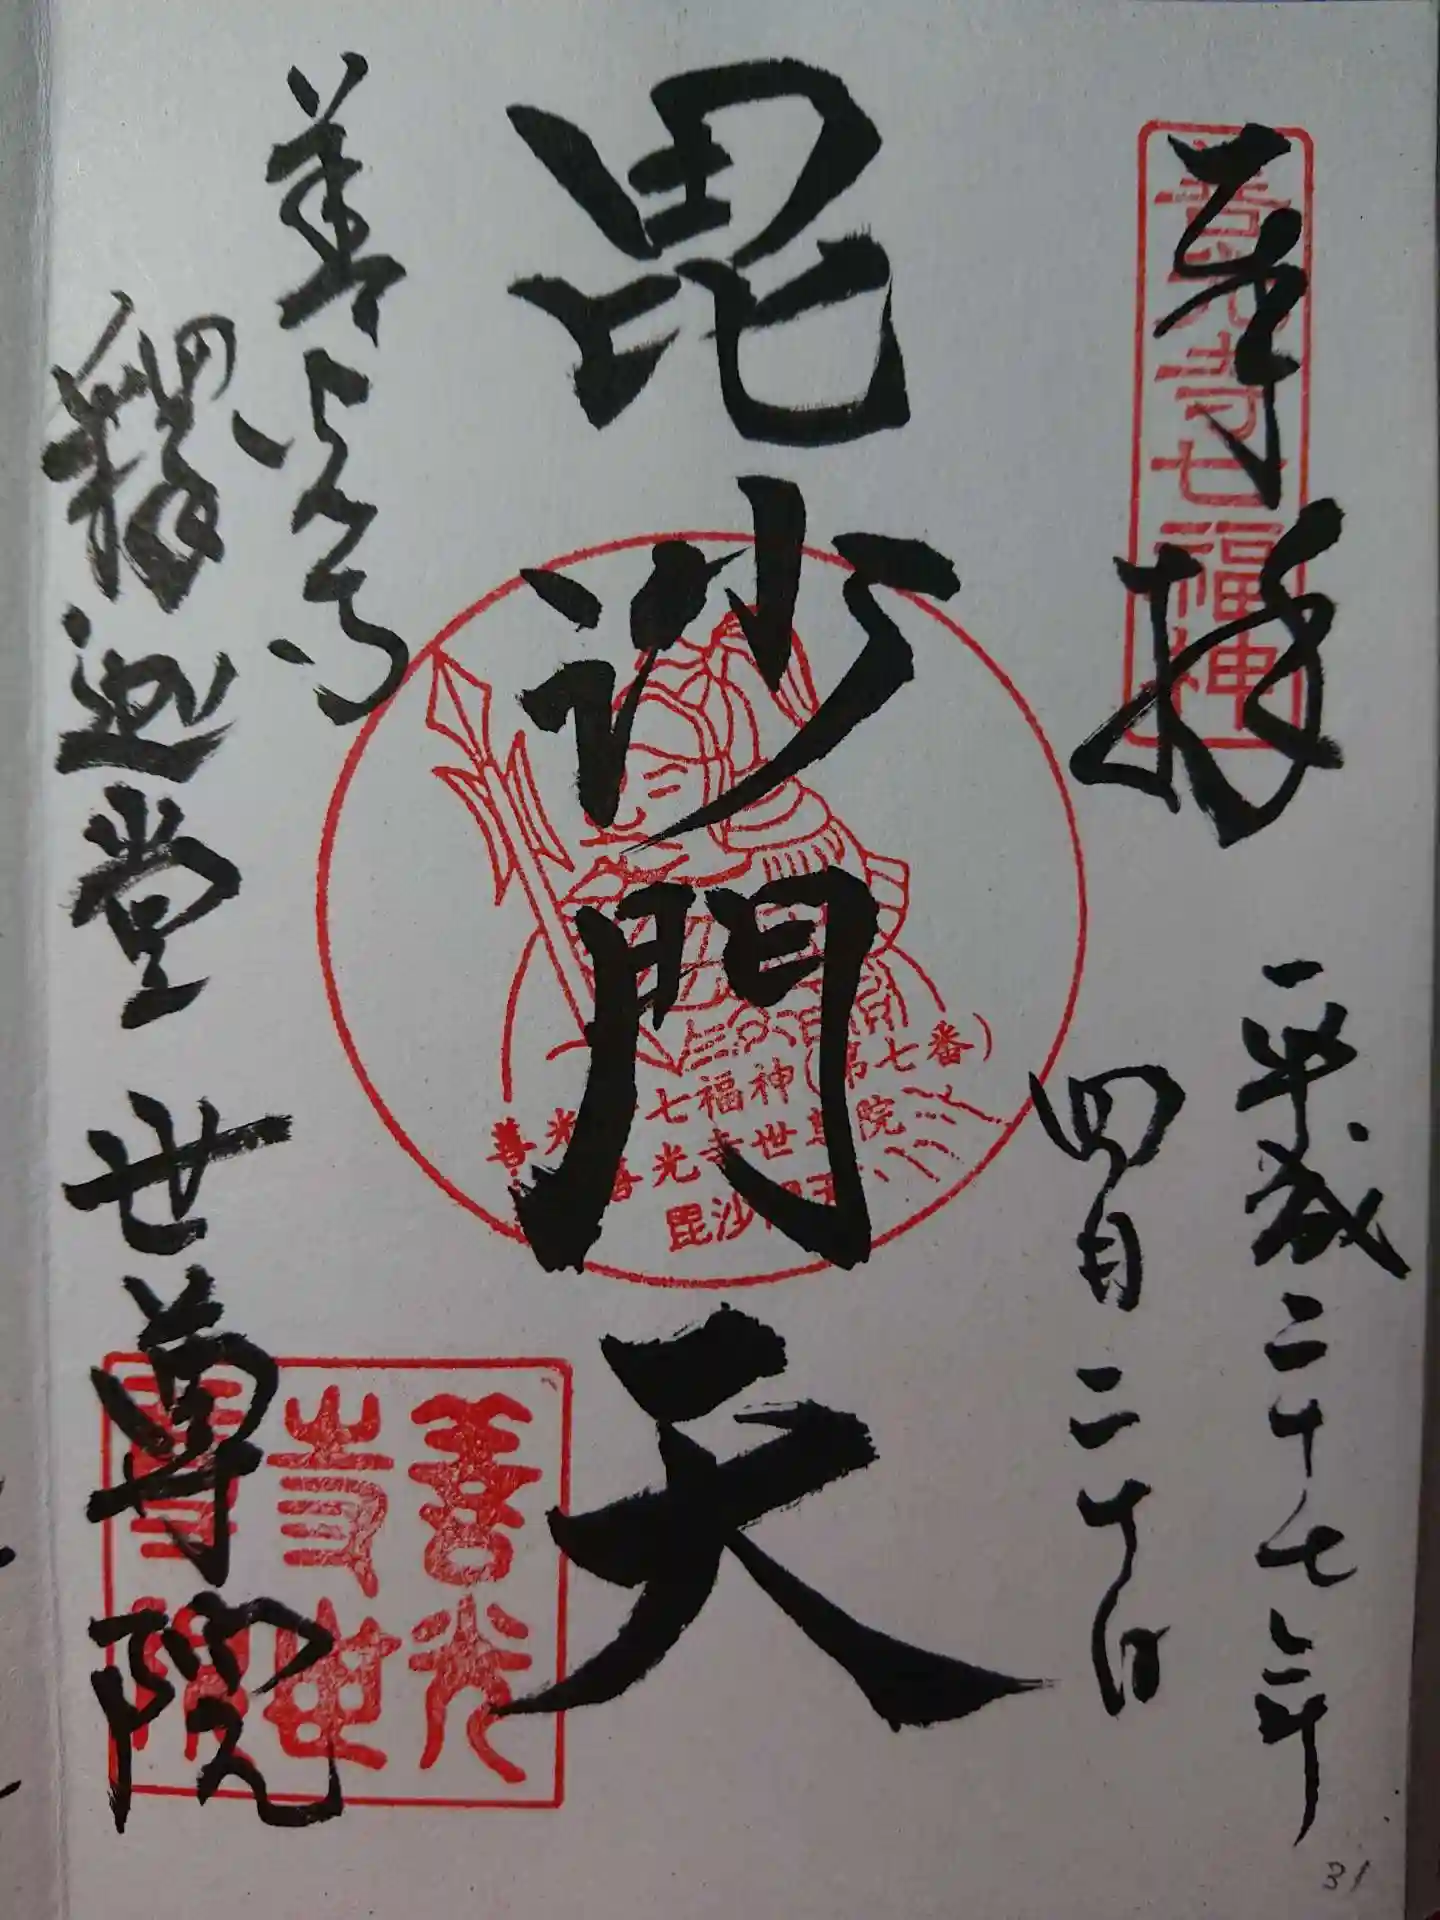 奉拝
善光寺七福神
平成二十七年
四月二十日
毘沙門天
善光寺七福神(第七番)
善光寺世尊院
毘沙門天
善光寺
釋迦堂 世尊院
善光
寺世
尊院
31